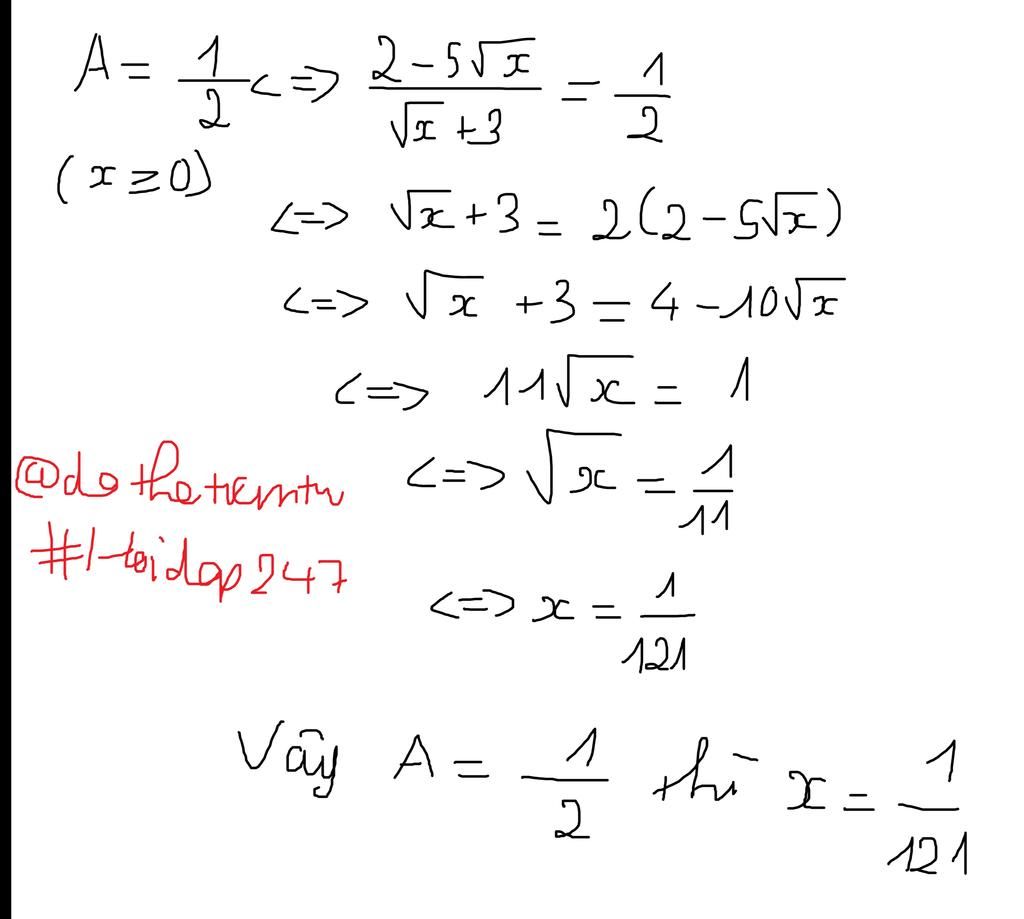 A = 1/2 <=> (2 - 5√x)/(√x + 3) = 1/2
(x ≥ 0)
<=> √x + 3 = 2(2 - 5√x)
<=> √x + 3 = 4 - 10√x
<=> 11√x = 1
<=> √x = 1/11
@dothetremtu
#Hoidap247
<=> x = 1/121
Vậy A = 1/2 thì x = 1/121